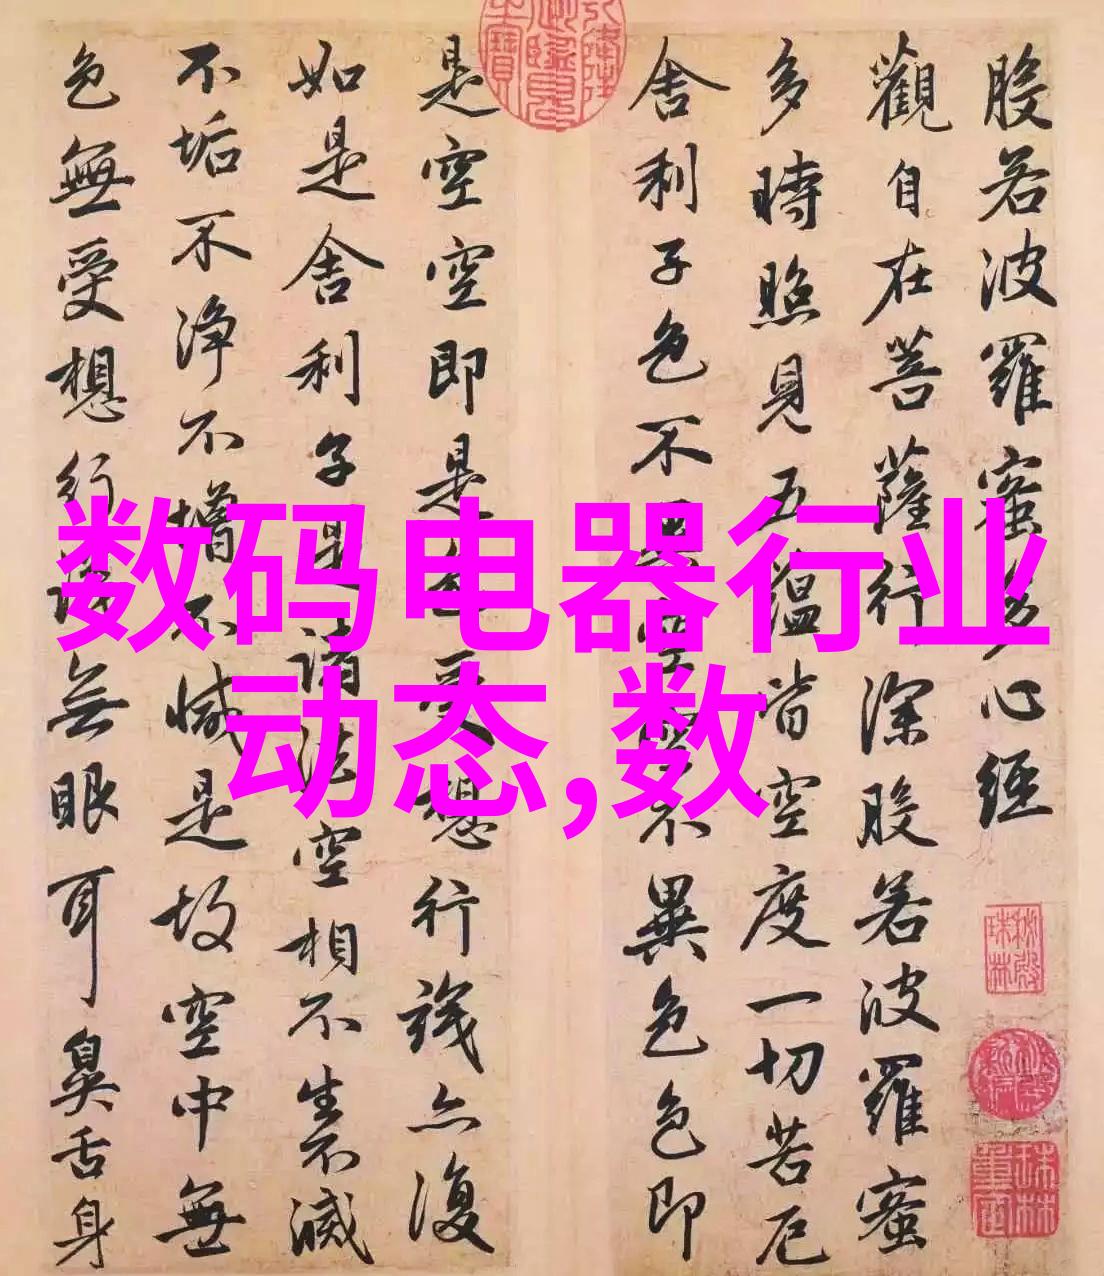 般若波羅蜜多心經
觀自在菩薩行深般若波羅蜜
多時照見五蘊皆空度一切苦厄
舍利子色不異空空不異色色即
是空空即是色受想行識亦復
如是舍利子是諸法空相不生不滅
不垢不淨不增不減是故空中無
色無受想行識無眼耳鼻舌身
数码电器行业
动态,数